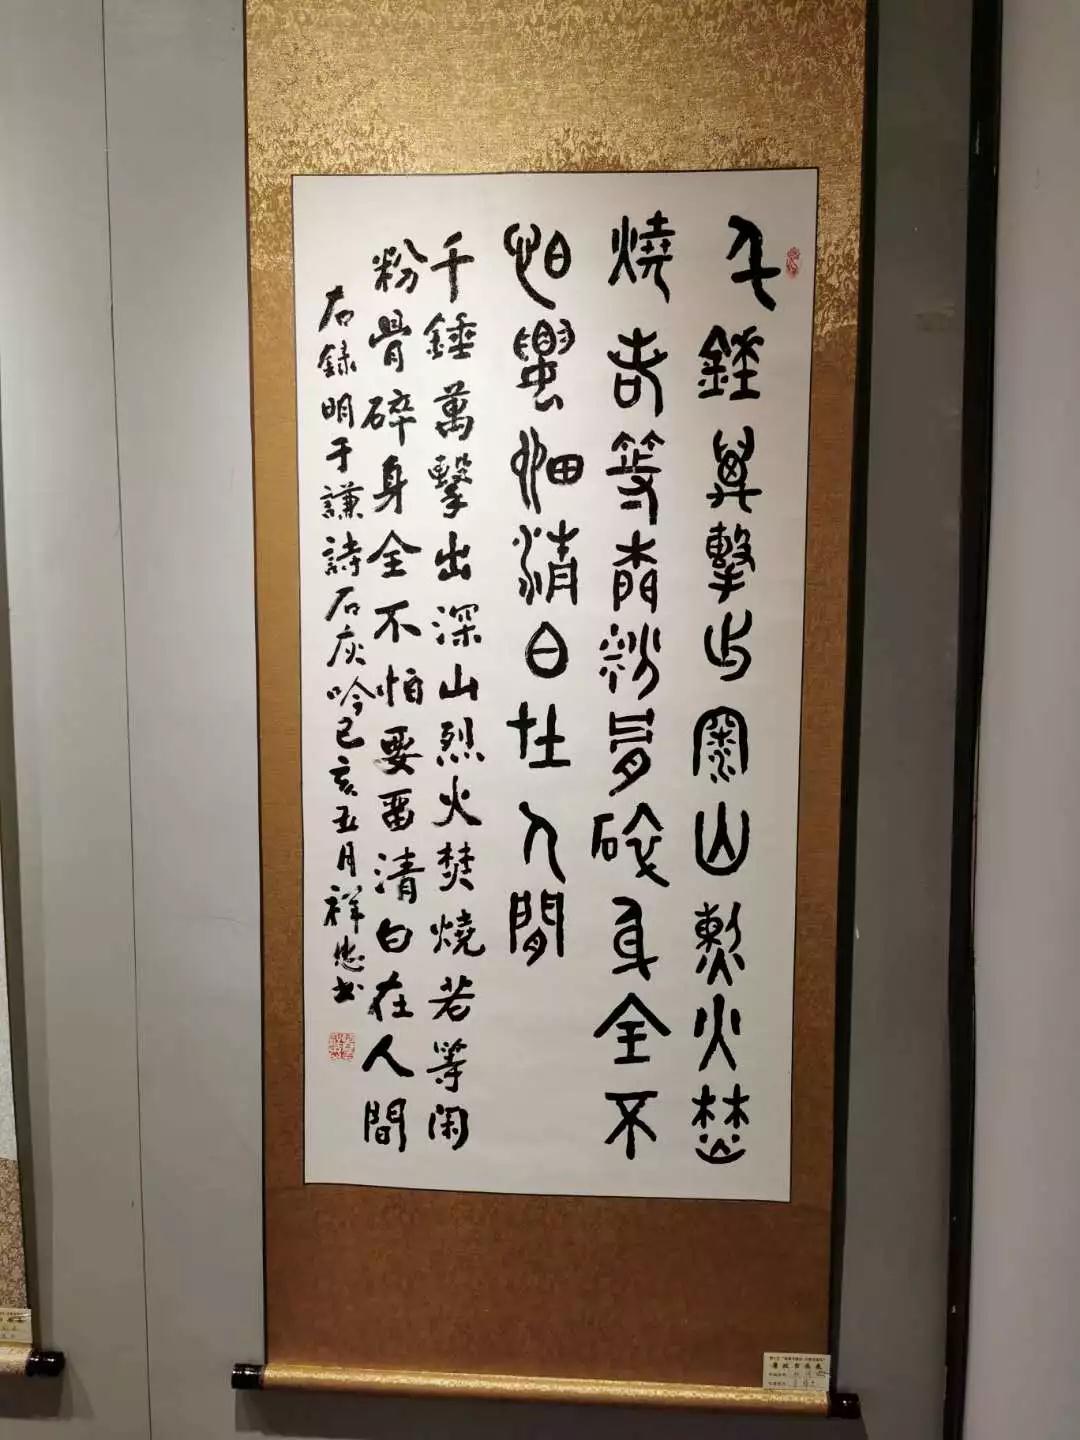 千錘萬擊出深山烈火焚
燒若等閑粉骨碎身全不
怕要留清白在人間
千錘萬擊出深山烈火焚燒若等閑
粉骨碎身全不怕要畱清白在人間
右録明于謙詩石灰吟己亥五月祥忠書